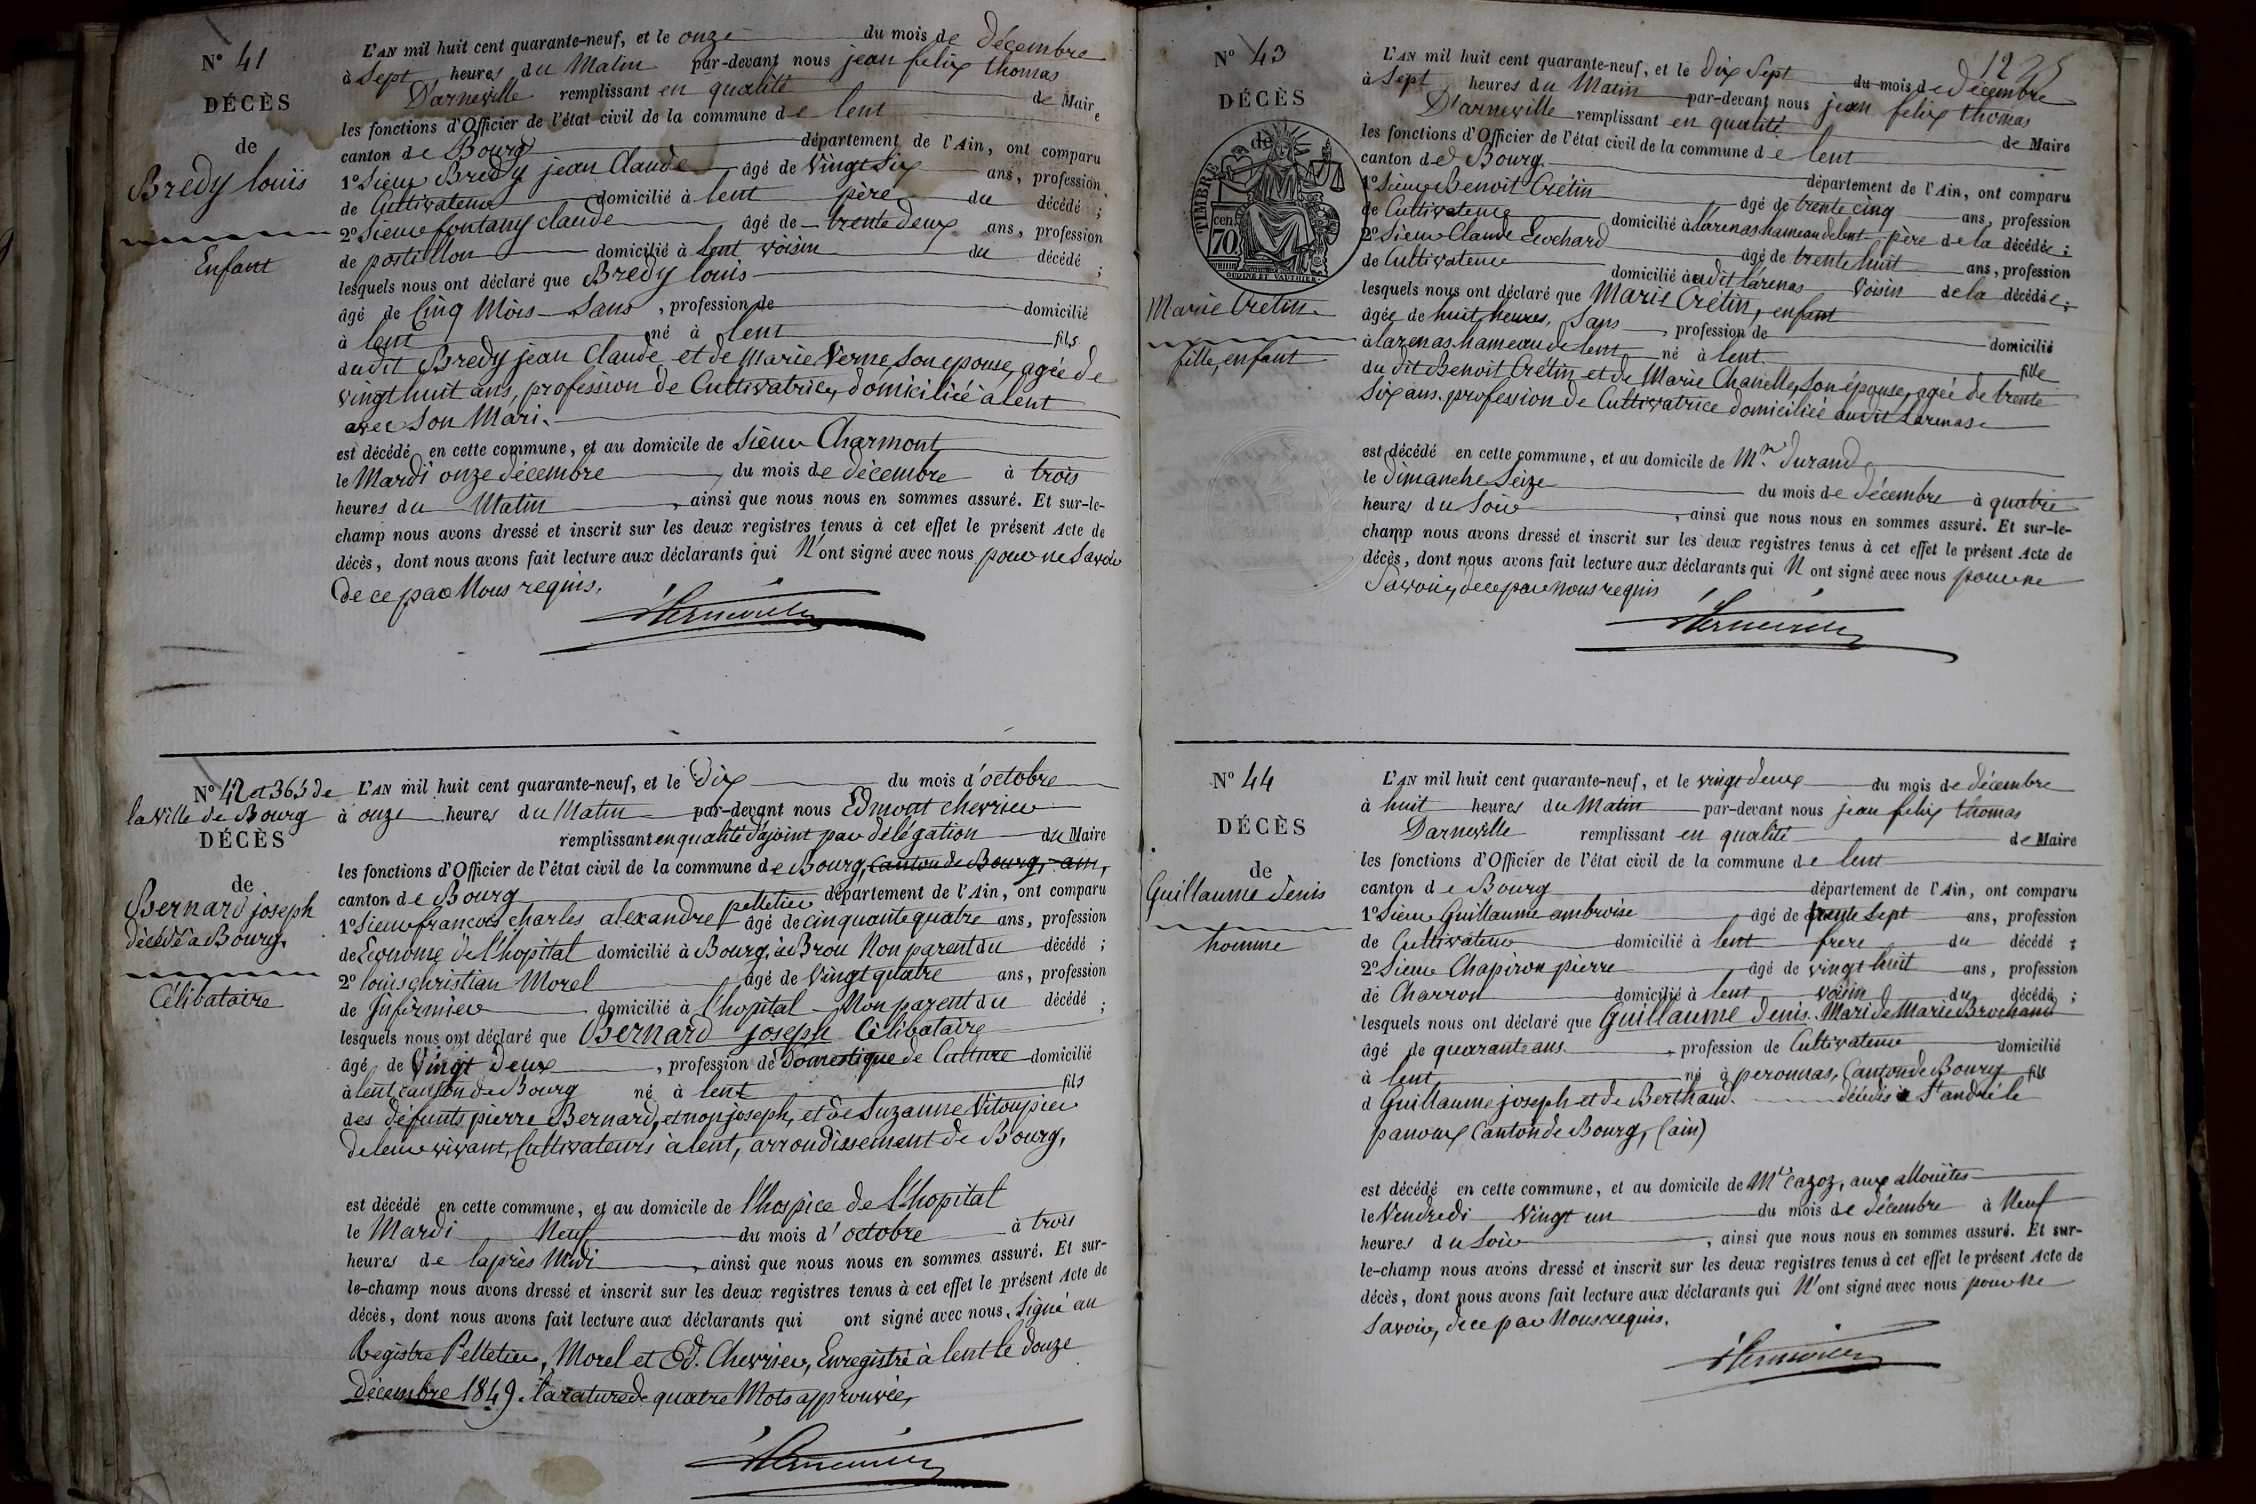 N° 41
DÉCÈS
de
Bredy louis
Enfant
L'AN mil huit cent quarante-neuf, et le onze du mois de décembre
à Sept heures du Matin par-devant nous jean felix thomas
Darneville remplissant en qualité de Maire
les fonctions d'Officier de l'état civil de la commune de lent
canton de Bourg département de l'Ain, ont comparu
1° Sieur Bredy jean Claude âgé de Vingt Six ans, profession
de Cultivateur domicilié à lent père du décédé ;
2° Sieur fontany claude âgé de trente deux ans, profession
de postillon domicilié à lent voisin du décédé ;
lesquels nous ont déclaré que Bredy louis
âgé de Cinq Mois Sans , profession de domicilié
à lent né à lent fils
du dit Bredy jean Claude et de Marie Verne, Son epouse, agée de
vingt huit ans, profession de Cultivatrice, domiciliée à lent
avec Son Mari.
est décédé en cette commune, et au domicile de Sieur Charmont
le Mardi onze décembre du mois de décembre à trois
heures du Matin , ainsi que nous nous en sommes assuré. Et sur-le-
champ nous avons dressé et inscrit sur les deux registres tenus à cet effet le présent Acte de
décès, dont nous avons fait lecture aux déclarants qui N'ont signé avec nous pour ne Savoir
de ce par Nous requis.
N° 42 et 363 de
la Ville de Bourg
DÉCÈS
de
Bernard joseph
décédé à Bourg.
Célibataire
L'AN mil huit cent quarante-neuf, et le Dix du mois d'octobre
à onze heures du Matin par-devant nous Edmont chevrier
remplissant en qualité d'ajoint par délégation du Maire
les fonctions d'Officier de l'état civil de la commune de Bourg, Canton de Bourg, ain,
canton de Bourg département de l'Ain, ont comparu
1° Sieur francois charles alexandre pelletier âgé de cinquante quatre ans, profession
de Econome de l'hopital domicilié à Bourg, à Brou Non parent du décédé ;
2° louis christian Morel âgé de Vingt quatre ans, profession
de Infirmier domicilié à l'hopital Non parent du décédé ;
lesquels nous ont déclaré que Bernard joseph Célibataire
âgé de Vingt deux , profession de domestique de Culture domicilié
à lent, canton de Bourg né à lent fils
des défunts pierre Bernard, et non joseph, et de Suzanne Vitoupier
de leur vivant, Cultivateurs à lent, arrondissement de Bourg,
est décédé en cette commune, et au domicile de l'hospice de l'hopital
le Mardi Neuf du mois d'octobre à trois
heures de l'après Midi , ainsi que nous nous en sommes assuré. Et sur-
le-champ nous avons dressé et inscrit sur les deux registres tenus à cet effet le présent Acte de
décès, dont nous avons fait lecture aux déclarants qui ont signé avec nous. Signé au
Registre Pelletier, Morel et Ed. Chevrier, Enregistré à lent le douze
décembre 1849. la rature de quatre Mots approuvée,
1225
N° 43
DÉCÈS
de
TIMBRE
70 cen
Marie Cretin.
fille, enfant
L'AN mil huit cent quarante-neuf, et le dix Sept du mois de décembre
à Sept heures du Matin par-devant nous jean felix thomas
D'arneville remplissant en qualité de Maire
les fonctions d'Officier de l'état civil de la commune de lent
canton de Bourg département de l'Ain, ont comparu
1° Sieur Benoit Crétin âgé de trente cinq ans, profession
de Cultivateur domicilié à larenas hameau de lent père de la décédée ;
2° Sieur Claude Lochard âgé de trente huit ans, profession
de Cultivateur domicilié au dit larenas Voisin de la décédée ;
lesquels nous ont déclaré que Marie Crétin, enfant
âgée de huit heures, Sans , profession de domicilié
à larenas hameau de lent né à lent fille
du dit Benoit Crétin et de Marie Chanelle, Son épouse, agée de trente
Six ans, profession de Cultivatrice domiciliée au dit larenas
est décédé en cette commune, et au domicile de Mr. Durand
le dimanche Seize du mois de décembre à quatre
heures du Soir , ainsi que nous nous en sommes assuré. Et sur-le-
champ nous avons dressé et inscrit sur les deux registres tenus à cet effet le présent Acte de
décès, dont nous avons fait lecture aux déclarants qui N'ont signé avec nous pour ne
Savoir, de ce par Nous requis
N° 44
DÉCÈS
de
Guillaume Denis
homme
L'AN mil huit cent quarante-neuf, et le vingt deux du mois de décembre
à huit heures du Matin par-devant nous jean felix thomas
Darneville remplissant en qualité de Maire
les fonctions d'Officier de l'état civil de la commune de lent
canton de Bourg département de l'Ain, ont comparu
1° Sieur Guillaume ambroise âgé de trente Sept ans, profession
de Cultivateur domicilié à lent frere du décédé ;
2° Sieur Chapiron pierre âgé de vingt huit ans, profession
de Charron domicilié à lent voisin du décédé ;
lesquels nous ont déclaré que Guillaume Denis. Mari de Marie Brochand
âgé de quarante ans , profession de Cultivateur domicilié
à lent né à peronnas, Canton de Bourg fils
d Guillaume joseph et de Berthaud. décédés à St andré le
panoux Canton de Bourg, (ain)
est décédé en cette commune, et au domicile de Mr Cazoz, aux allouëtes
le Vendredi Vingt un du mois de décembre à Neuf
heures du Soir , ainsi que nous nous en sommes assuré. Et sur-
le-champ nous avons dressé et inscrit sur les deux registres tenus à cet effet le présent Acte de
décès, dont nous avons fait lecture aux déclarants qui N'ont signé avec nous pour ne
Savoir, de ce par Nous requis.